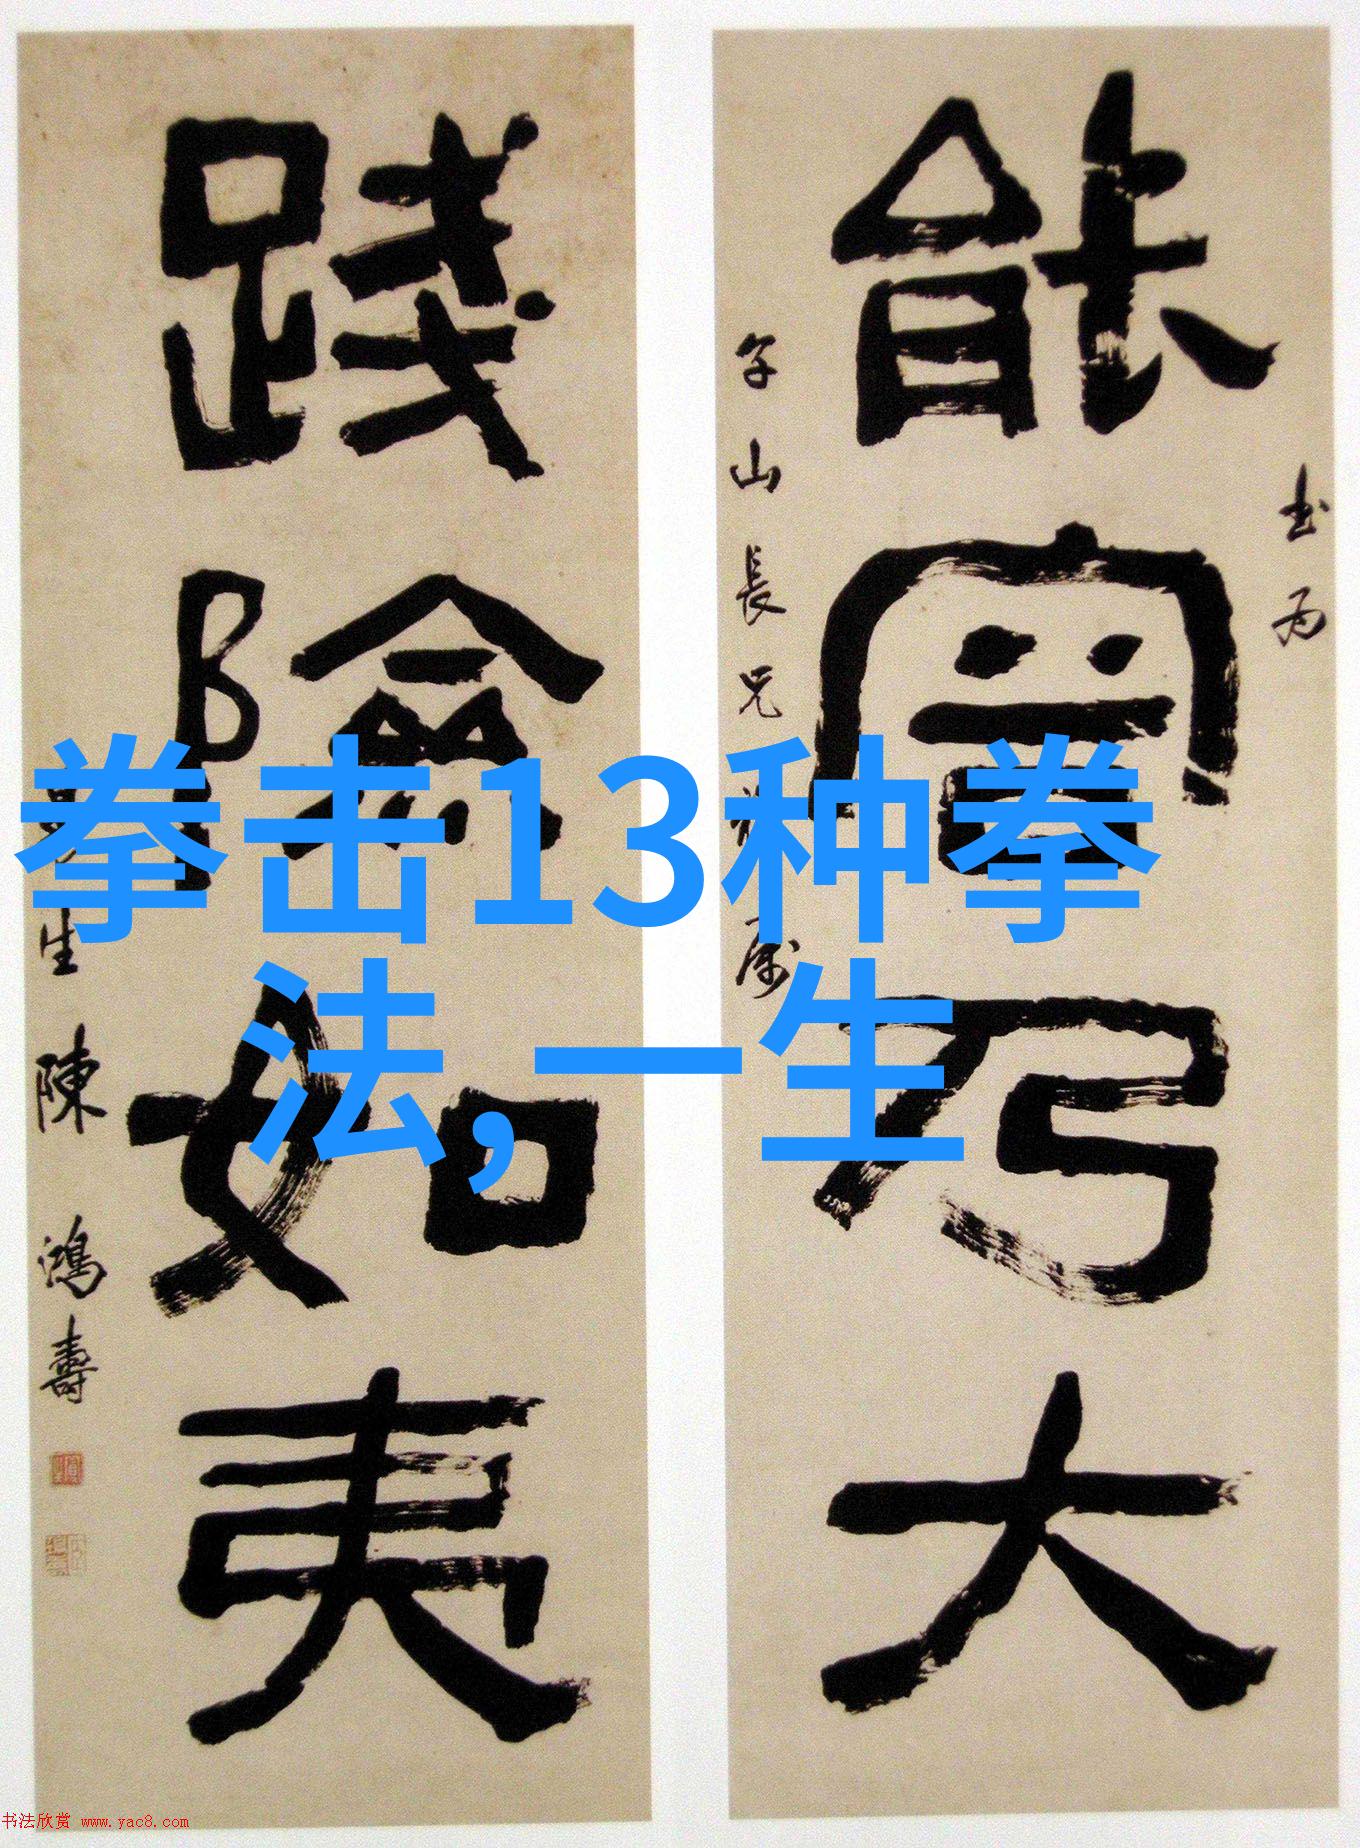 拳击13种拳
法,一生
書為
能容乃大
山長兄
踐險如夷
生陳鴻壽
书法欣赏 www.yac8.com